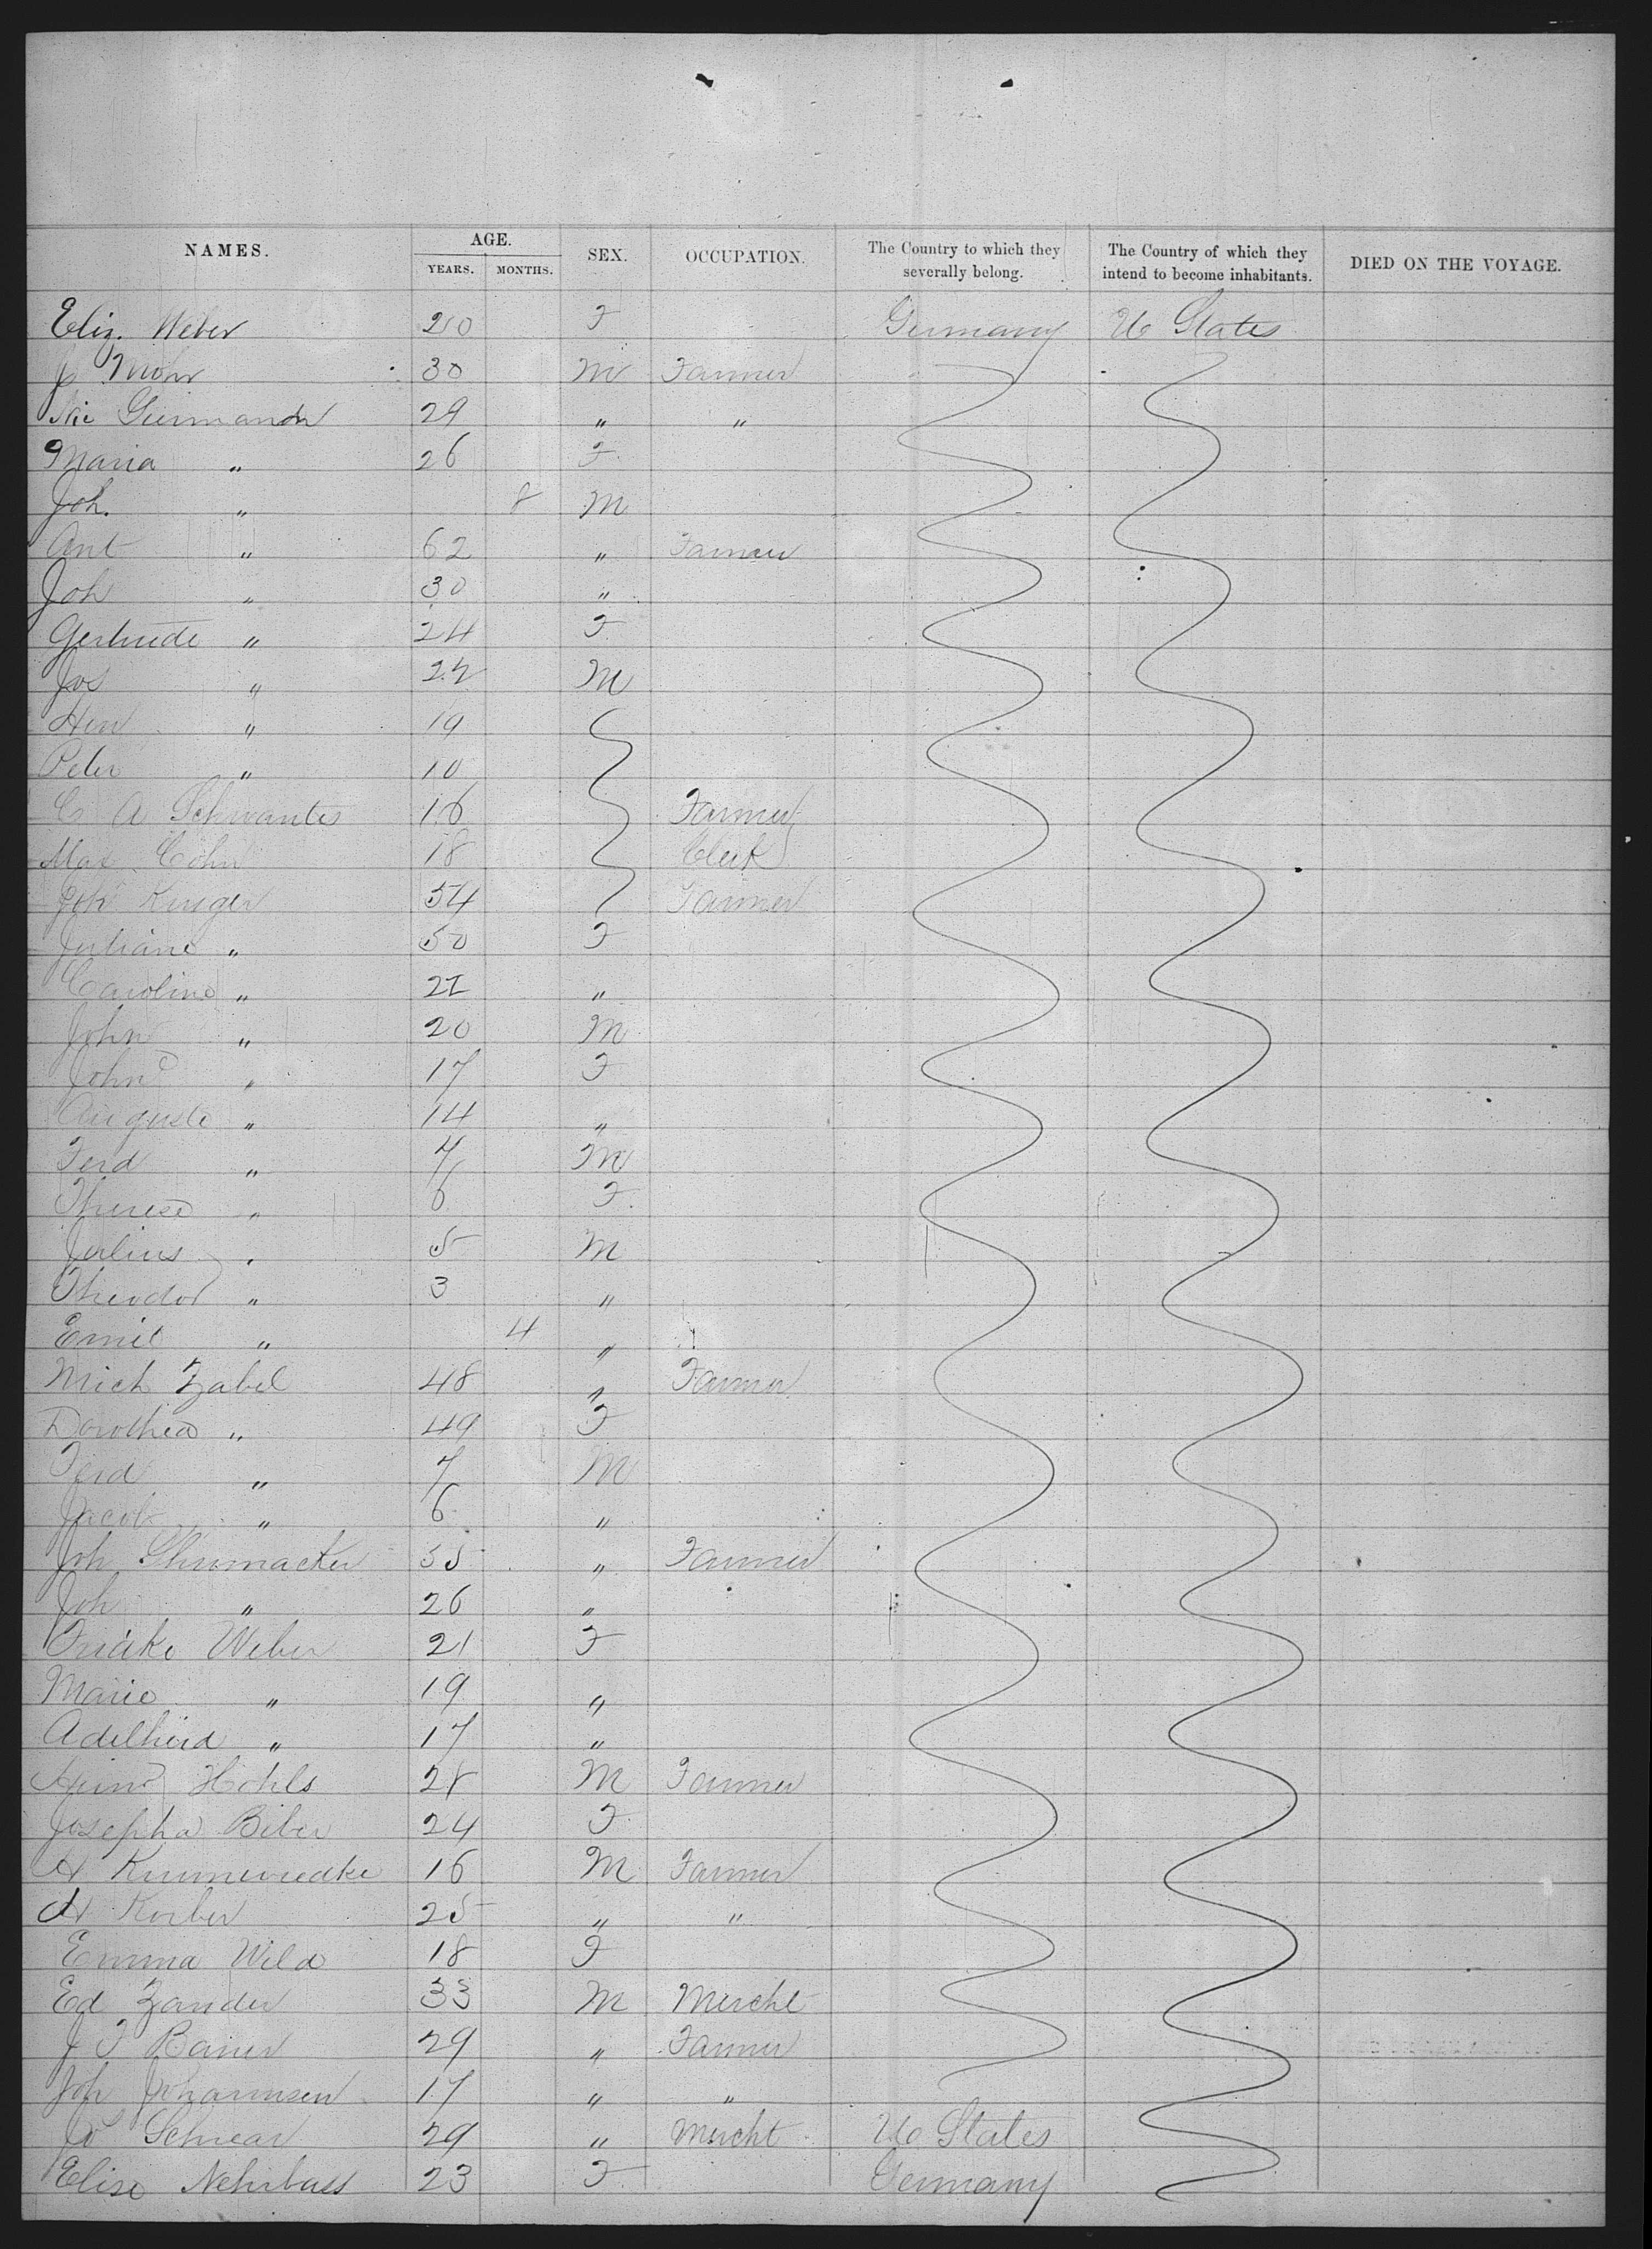 NAMES. AGE. YEARS. MONTHS. SEX. OCCUPATION. The Country to which they severally belong. The Country of which they intend to become inhabitants. DIED ON THE VOYAGE.
Eliz. Weber 20 F Germany U States
J Mohr 30 M Farmer
Nic 29 " "
Maria " 26 F
Joh. " 8 M
Ant " 62 " Farmer
Joh " 30 "
Gertrude " 24 F
Jos " 22 M
Hen " 19
Peter " 10
C A Schwantes 16 Farmer
Max Cohn 18 Clerk
Joh Kruger 54 Farmer
Juliane " 50 F
Caroline " 21 "
John " 20 M
John " 17 F
Auguste " 14 "
Ferd " 7 M
Therese " 6 F
Julius " 5 M
Theodor " 3 "
Emil " 4 "
Mich Zabel 48 " Farmer
Dorothea " 49 F
Ferd " 7 M
Jacob " 6 "
Joh Shumacker 35 " Farmer
Joh " 26 "
Weber 21 F
Marie " 19 "
Adelheid " 17 "
Hohls 28 M Farmer
Josepha Biber 24 F
H 16 M Farmer
H Korber 25 " "
Emma Wild 18 F
Ed Zander 33 M Mercht
J F Bauer 29 " Farmer
Joh Johannsen 17 " "
29 " Mercht U States
Elise Nehrbass 23 F Germany